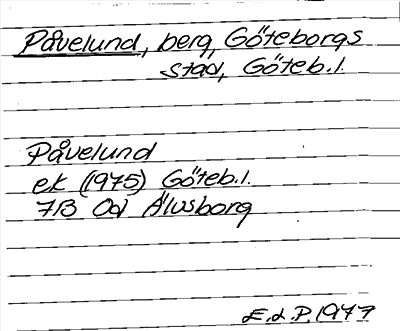 Påvelund, berg, Göteborgs
stad, Göteb.l.
Påvelund
ek (1975) Göteb.l.
7B Od Älvsborg
E.d.P. 1977